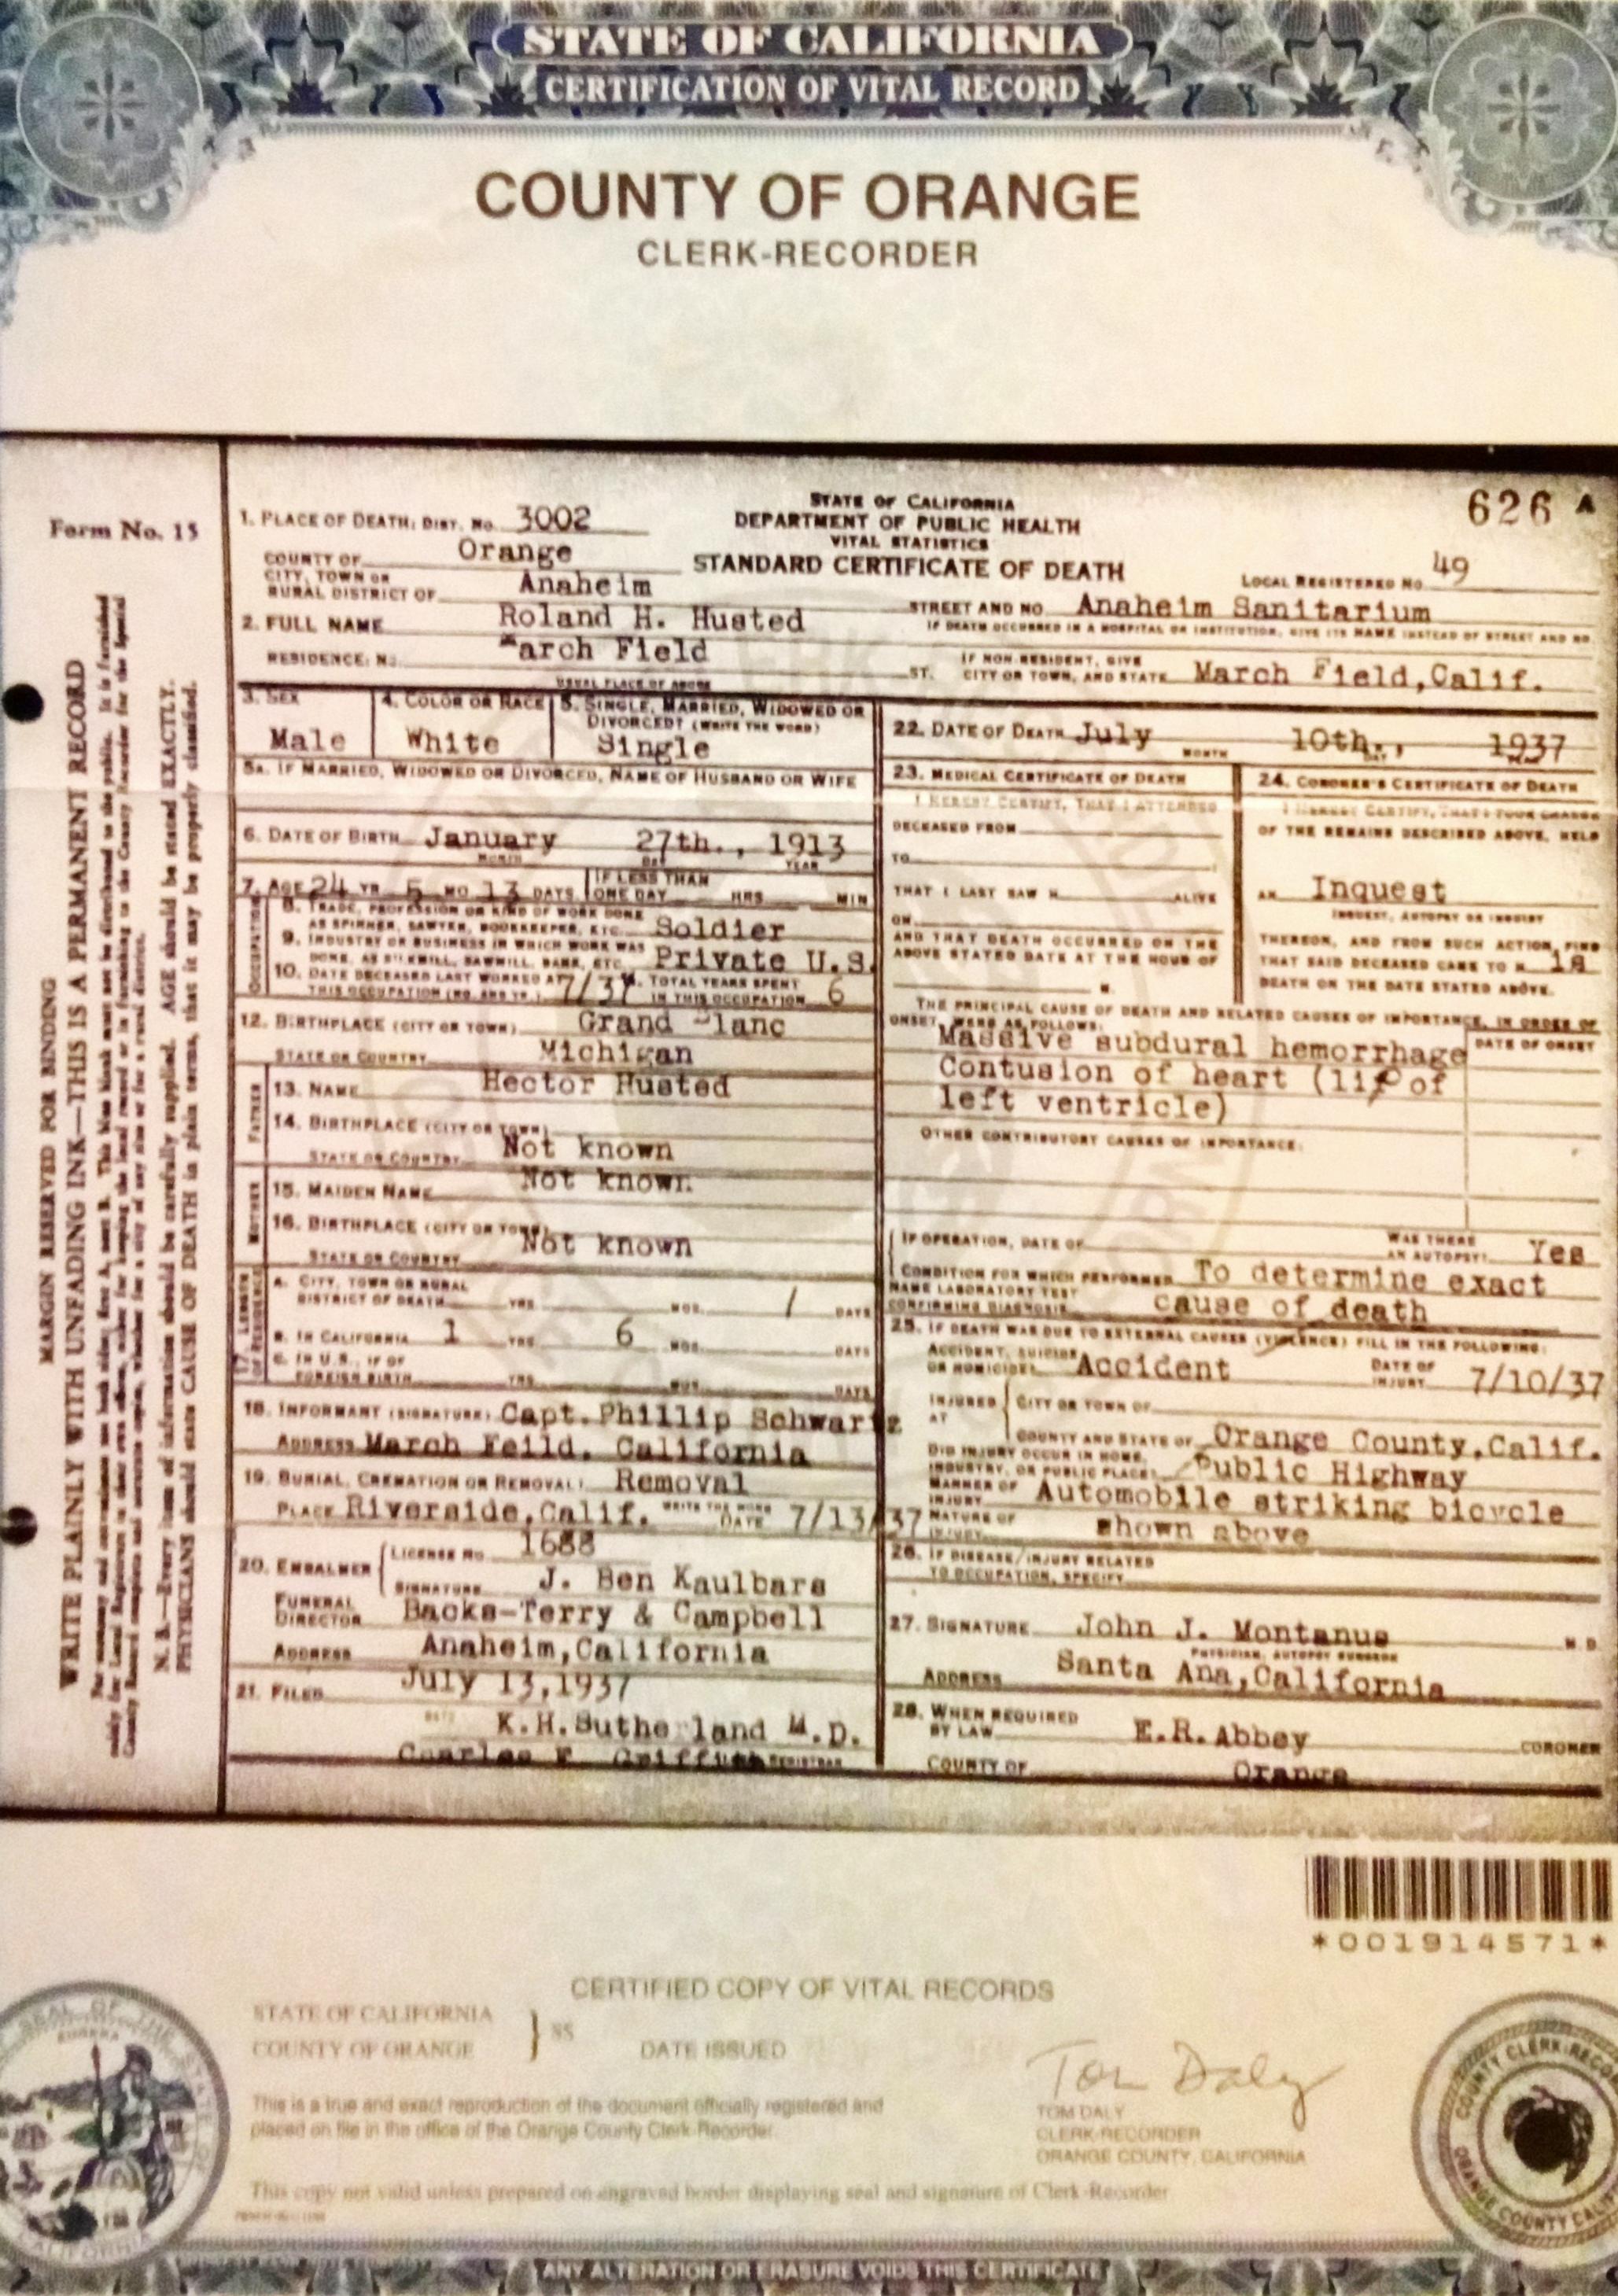 STATE OF CALIFORNIA
CERTIFICATION OF VITAL RECORD
COUNTY OF ORANGE
CLERK-RECORDER
Form No. 15
MARGIN RESERVED FOR BINDING
WRITE PLAINLY WITH UNFADING INK—THIS IS A PERMANENT RECORD
N. B.—Every item of information should be carefully supplied. AGE should be stated EXACTLY.
PHYSICIANS should state CAUSE OF DEATH in plain terms, that it may be properly classified.
626 A
STATE OF CALIFORNIA
DEPARTMENT OF PUBLIC HEALTH
VITAL STATISTICS
STANDARD CERTIFICATE OF DEATH
LOCAL REGISTERED NO. 49
1. PLACE OF DEATH: DIST. NO. 3002
COUNTY OF Orange
CITY, TOWN OR
RURAL DISTRICT OF Anaheim
STREET AND NO Anaheim Sanitarium
IF DEATH OCCURRED IN A HOSPITAL OR INSTITUTION, GIVE ITS NAME INSTEAD OF STREET AND NO.
2. FULL NAME Roland H. Husted
RESIDENCE: NO March Field
USUAL PLACE OF ABODE
ST. IF NON-RESIDENT, GIVE
CITY OR TOWN, AND STATE March Field,Calif.
3. SEX
Male
4. COLOR OR RACE
White
5. SINGLE, MARRIED, WIDOWED OR
DIVORCED? (WRITE THE WORD)
Single
5A. IF MARRIED, WIDOWED OR DIVORCED, NAME OF HUSBAND OR WIFE
6. DATE OF BIRTH January 27th., 1913
MONTH DAY YEAR
7. AGE 24 YR 5 MO 13 DAYS IF LESS THAN
ONE DAY HRS MIN
OCCUPATION
8. TRADE, PROFESSION OR KIND OF WORK DONE
AS SPINNER, SAWYER, BOOKKEEPER, ETC. Soldier
9. INDUSTRY OR BUSINESS IN WHICH WORK WAS
DONE, AS SILK MILL, SAWMILL, BANK, ETC Private U.S.
10. DATE DECEASED LAST WORKED AT
THIS OCCUPATION (MO. AND YR.) 7/37 TOTAL YEARS SPENT
IN THIS OCCUPATION 6
12. BIRTHPLACE (CITY OR TOWN) Grand Blanc
STATE OR COUNTRY Michigan
FATHER
13. NAME Hector Husted
14. BIRTHPLACE (CITY OR TOWN)
STATE OR COUNTRY Not known
MOTHER
15. MAIDEN NAME Not known
16. BIRTHPLACE (CITY OR TOWN)
STATE OR COUNTRY Not known
17. LENGTH OF RESIDENCE
A. CITY, TOWN OR RURAL
DISTRICT OF DEATH YRS MOS. 1 DAYS
B. IN CALIFORNIA 1 YRS 6 MOS. DAYS
C. IN U.S., IF OF
FOREIGN BIRTH YRS MOS DAYS
18. INFORMANT (SIGNATURE) Capt.Phillip Schwartz
ADDRESS March Feild. California
19. BURIAL, CREMATION OR REMOVAL? Removal
WRITE THE WORD
PLACE Riverside,Calif. DATE 7/13/37
20. EMBALMER LICENSE NO. 1688
SIGNATURE J. Ben Kaulbars
FUNERAL
DIRECTOR Backs-Terry & Campbell
ADDRESS Anaheim,California
21. FILED July 13,1937
DATE
K.H.Sutherland M.D.
Charles F. Griffith REGISTRAR
22. DATE OF DEATH July 10th., 1937
MONTH DAY YEAR
23. MEDICAL CERTIFICATE OF DEATH
I HEREBY CERTIFY, THAT I ATTENDED
DECEASED FROM
TO
THAT I LAST SAW H ALIVE
ON
AND THAT DEATH OCCURRED ON THE
ABOVE STATED DATE AT THE HOUR OF
M.
24. CORONER'S CERTIFICATE OF DEATH
I HEREBY CERTIFY, THAT I TOOK CHARGE
OF THE REMAINS DESCRIBED ABOVE, HELD
AN Inquest
INQUEST, AUTOPSY OR INQUIRY
THEREON, AND FROM SUCH ACTION, FIND
THAT SAID DECEASED CAME TO H is
DEATH ON THE DATE STATED ABOVE.
THE PRINCIPAL CAUSE OF DEATH AND RELATED CAUSES OF IMPORTANCE, IN ORDER OF
ONSET, WERE AS FOLLOWS:
DATE OF ONSET
Massive subdural hemorrhage
Contusion of heart (lip of
left ventricle)
OTHER CONTRIBUTORY CAUSES OF IMPORTANCE:
IF OPERATION, DATE OF WAS THERE
AN AUTOPSY? Yes
CONDITION FOR WHICH PERFORMED To determine exact
NAME LABORATORY TEST
CONFIRMING DIAGNOSIS cause of death
25. IF DEATH WAS DUE TO EXTERNAL CAUSES (VIOLENCE) FILL IN THE FOLLOWING:
ACCIDENT, SUICIDE
OR HOMICIDE? Accident DATE OF
INJURY 7/10/37
INJURED AT CITY OR TOWN OF
COUNTY AND STATE OF Orange County,Calif.
DID INJURY OCCUR IN HOME,
INDUSTRY, OR PUBLIC PLACE? Public Highway
MANNER OF
INJURY Automobile striking bicycle
NATURE OF
INJURY shown above
26. IF DISEASE/INJURY RELATED
TO OCCUPATION, SPECIFY
27. SIGNATURE John J. Montanus M.D.
PHYSICIAN, AUTOPSY SURGEON
ADDRESS Santa Ana,California
28. WHEN REQUIRED
BY LAW E.R.Abbey CORONER
COUNTY OF Orange
*001914571*
CERTIFIED COPY OF VITAL RECORDS
STATE OF CALIFORNIA
COUNTY OF ORANGE
SS
DATE ISSUED
Tom Daly
TOM DALY
CLERK-RECORDER
ORANGE COUNTY, CALIFORNIA
This is a true and exact reproduction of the document officially registered and
placed on file in the office of the Orange County Clerk-Recorder.
This copy not valid unless prepared on engraved border displaying seal and signature of Clerk-Recorder
ANY ALTERATION OR ERASURE VOIDS THIS CERTIFICATE